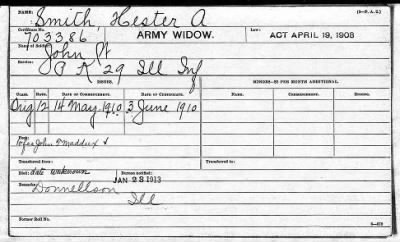 (3—P. A. C.)
NAME: Smith, Hester A
Certificate No. 703386 ARMY WIDOW. Law: ACT APRIL 19, 1908
Name of Soldier: John W
Service: 29 Ill Inf
ISSUES. MINORS—$2 PER MONTH ADDITIONAL.
CLASS. RATE. DATE OF COMMENCEMENT. DATE OF CERTIFICATE. NAME. COMMENCEMENT. ENDING.
Orig 12 14 May 1910 3 June 1910
John T Maddux
Transferred from:
Transferred to:
Died: date unknown Bureau notified: JAN 28 1913
Remarks: Donnellson
Ill
Former Roll No.